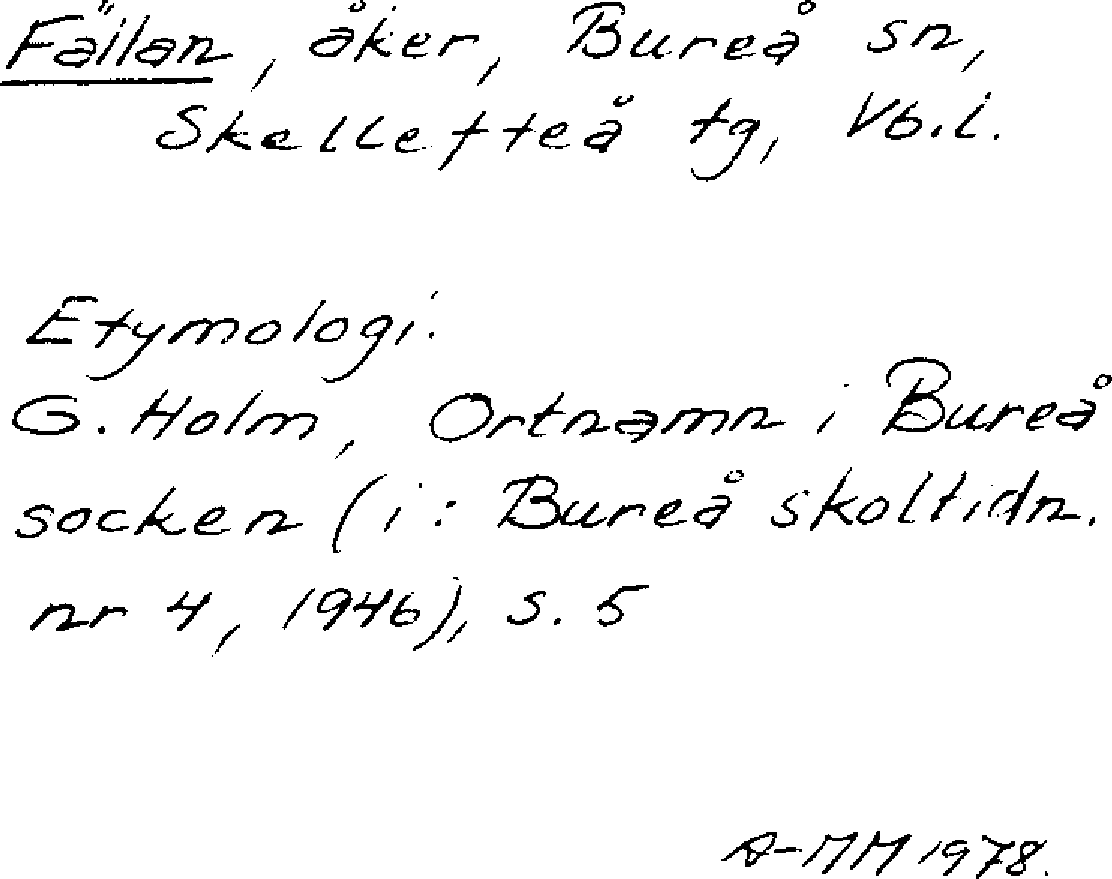 Fällan, åker, Bureå sn,
Skellefteå tg, Vb.l.
Etymologi:
G. Holm, Ortnamn i Bureå
socken (i: Bureå skoltidn.
nr 4, 1946), s. 5
A-MM 1978.